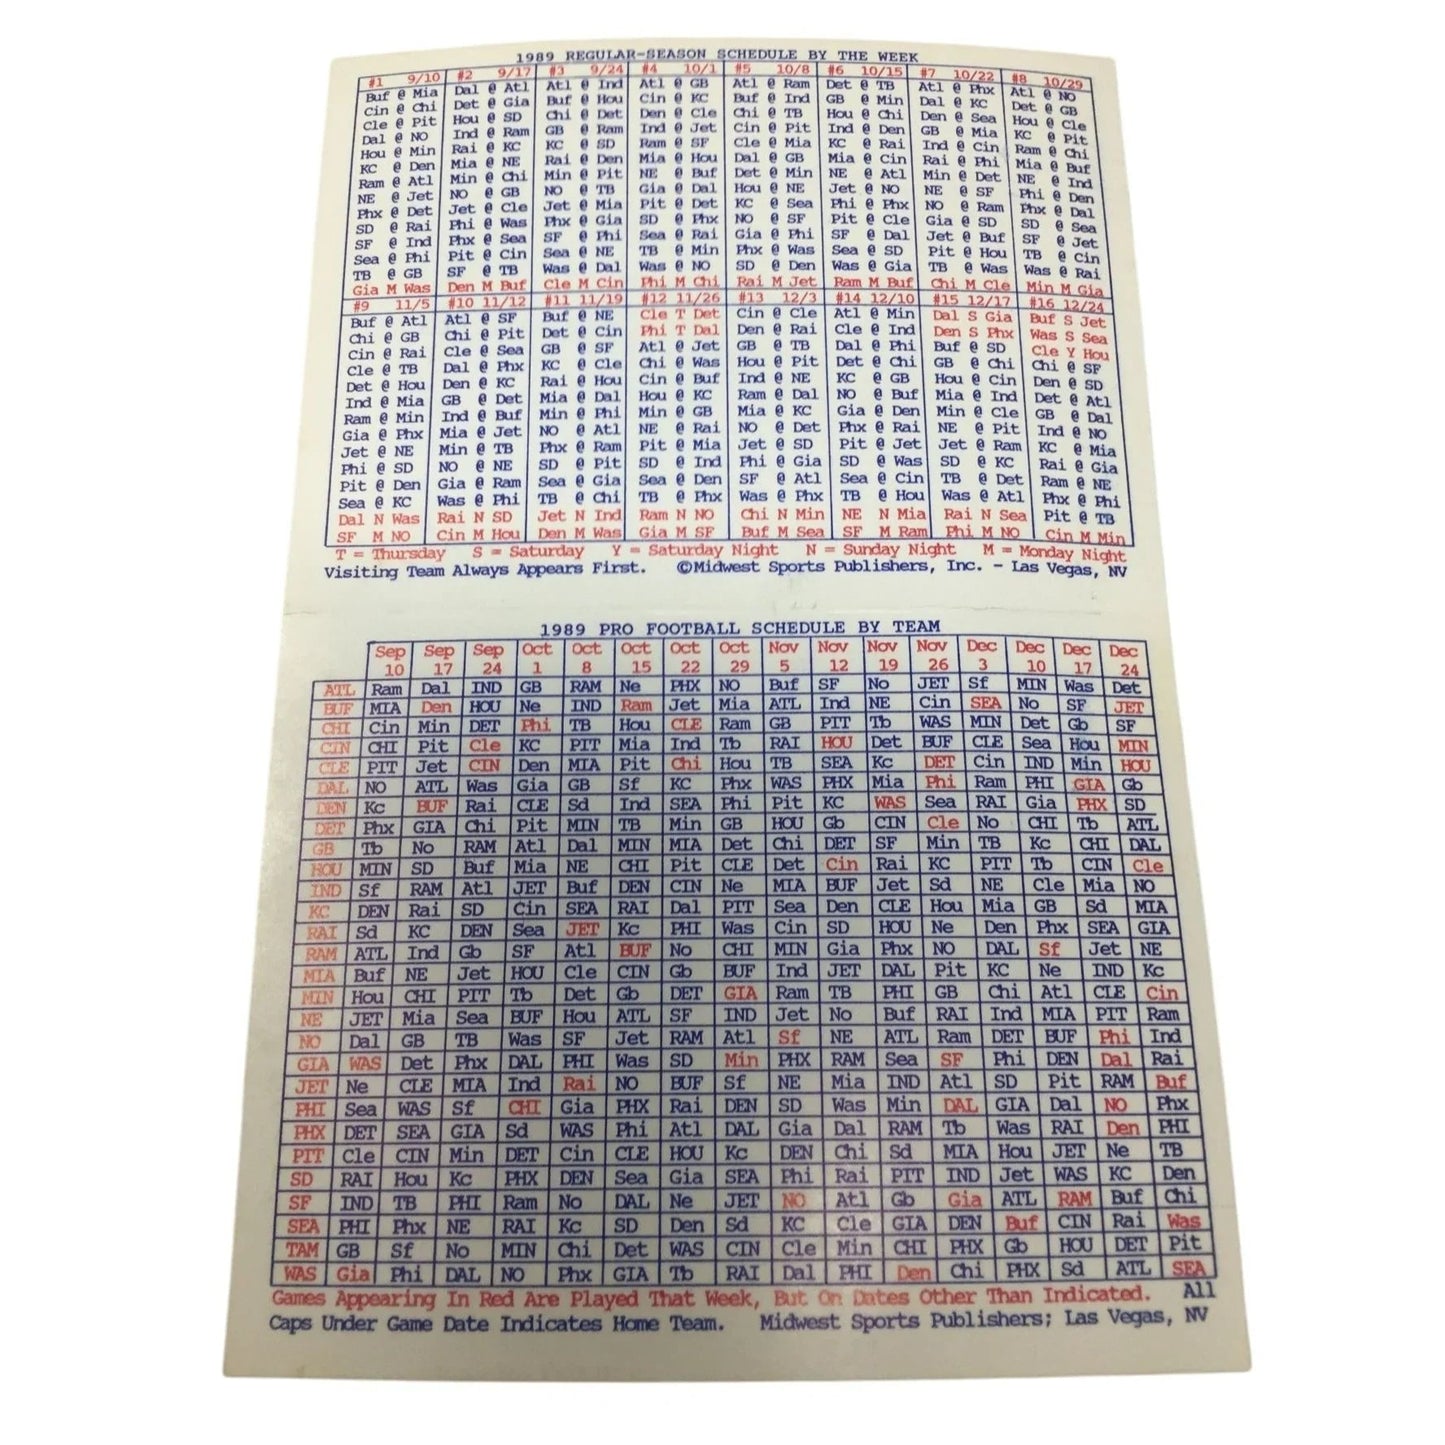 1989 REGULAR-SEASON SCHEDULE BY THE WEEK
#1 9/10 #2 9/17 #3 9/24 #4 10/1 #5 10/8 #6 10/15 #7 10/22 #8 10/29
Buf @ Mia Dal @ Atl Atl @ Ind Atl @ GB Atl @ Ram Det @ TB Atl @ Phx Atl @ NO
Cin @ Chi Det @ Gia Buf @ Hou Cin @ KC Buf @ Ind GB @ Min Dal @ KC Det @ GB
Cle @ Pit Hou @ SD Chi @ Det Den @ Cle Chi @ TB Hou @ Chi Den @ Sea Hou @ Cle
Dal @ NO Ind @ Ram GB @ Ram Ind @ Jet Cin @ Pit Ind @ Den GB @ Mia KC @ Pit
Hou @ Min Rai @ KC KC @ SD Ram @ SF Cle @ Mia KC @ Rai Ind @ Cin Ram @ Chi
KC @ Den Mia @ NE Rai @ Den Mia @ Hou Dal @ GB Mia @ Cin Rai @ Phi Mia @ Buf
Ram @ Atl Min @ Chi Min @ Pit NE @ Buf Det @ Min NE @ Atl Min @ Det NE @ Ind
NE @ Jet NO @ GB NO @ TB Gia @ Dal Hou @ NE Jet @ NO NE @ SF Phi @ Den
Phx @ Det Jet @ Cle Jet @ Mia Pit @ Det KC @ Sea Phi @ Phx NO @ Ram Phx @ Dal
SD @ Rai Phi @ Was Phx @ Gia SD @ Phx NO @ SF Pit @ Cle Gia @ SD SD @ Sea
SF @ Ind Phx @ Sea SF @ Phi Sea @ Rai Gia @ Phi SF @ Dal Jet @ Buf SF @ Jet
Sea @ Phi Pit @ Cin Sea @ NE TB @ Min Phx @ Was Sea @ SD Pit @ Hou TB @ Cin
TB @ GB SF @ TB Was @ Dal Was @ NO SD @ Den Was @ Gia TB @ Was Was @ Rai
Gia M Was Den M Buf Cle M Cin Phi M Chi Rai M Jet Ram M Buf Chi M Cle Min M Gia
#9 11/5 #10 11/12 #11 11/19 #12 11/26 #13 12/3 #14 12/10 #15 12/17 #16 12/24
Buf @ Atl Atl @ SF Buf @ NE Cle T Det Cin @ Cle Atl @ Min Dal S Gia Buf S Jet
Chi @ GB Chi @ Pit Det @ Cin Phi T Dal Den @ Rai Cle @ Ind Den S Phx Was S Sea
Cin @ Rai Cle @ Sea GB @ SF Atl @ Jet GB @ TB Dal @ Phi Buf @ SD Cle Y Hou
Cle @ TB Dal @ Phx KC @ Cle Chi @ Was Hou @ Pit Det @ Chi GB @ Chi Chi @ SF
Det @ Hou Den @ KC Rai @ Hou Cin @ Buf Ind @ NE KC @ GB Hou @ Cin Den @ SD
Ind @ Mia GB @ Det Mia @ Dal Hou @ KC Ram @ Dal NO @ Buf Mia @ Ind Det @ Atl
Ram @ Min Ind @ Buf Min @ Phi Min @ GB Mia @ KC Gia @ Den Min @ Cle GB @ Dal
Gia @ Phx Mia @ Jet NO @ Atl NE @ Rai NO @ Det Phx @ Rai NE @ Pit Ind @ NO
Jet @ NE Min @ TB Phx @ Ram Pit @ Mia Jet @ SD Pit @ Jet Jet @ Ram KC @ Mia
Phi @ SD NO @ NE SD @ Pit SD @ Ind Phi @ Gia SD @ Was SD @ KC Rai @ Gia
Pit @ Den Gia @ Ram Sea @ Gia Sea @ Den SF @ Atl Sea @ Cin TB @ Det Ram @ NE
Sea @ KC Was @ Phi TB @ Chi TB @ Phx Was @ Phx TB @ Hou Was @ Atl Phx @ Phi
Dal N Was Rai N SD Jet N Ind Ram N NO Chi N Min NE N Mia Rai N Sea Pit @ TB
SF M NO Cin M Hou Den M Was Gia M SF Buf M Sea SF M Ram Phi M NO Cin M Min
T = Thursday S = Saturday Y = Saturday Night N = Sunday Night M = Monday Night
Visiting Team Always Appears First. ©Midwest Sports Publishers, Inc. - Las Vegas, NV
1989 PRO FOOTBALL SCHEDULE BY TEAM
Sep Sep Sep Oct Oct Oct Oct Oct Nov Nov Nov Nov Dec Dec Dec Dec
10 17 24 1 8 15 22 29 5 12 19 26 3 10 17 24
ATL Ram Dal IND GB RAM Ne PHX NO Buf SF No JET Sf MIN Was Det
BUF MIA Den HOU Ne IND Ram Jet Mia ATL Ind NE Cin SEA No SF JET
CHI Cin Min DET Phi TB Hou CLE Ram GB PIT Tb WAS MIN Det Gb SF
CIN CHI Pit Cle KC PIT Mia Ind Tb RAI HOU Det BUF CLE Sea Hou MIN
CLE PIT Jet CIN Den MIA Pit Chi Hou TB SEA Kc DET Cin IND Min HOU
DAL NO ATL Was Gia GB Sf KC Phx WAS PHX Mia Phi Ram PHI GIA Gb
DEN Kc BUF Rai CLE Sd Ind SEA Phi Pit KC WAS Sea RAI Gia PHX SD
DET Phx GIA Chi Pit MIN TB Min GB HOU Gb CIN Cle No CHI Tb ATL
GB Tb No RAM Atl Dal MIN MIA Det Chi DET SF Min TB Kc CHI DAL
HOU MIN SD Buf Mia NE CHI Pit CLE Det Cin Rai KC PIT Tb CIN Cle
IND Sf RAM Atl JET Buf DEN CIN Ne MIA BUF Jet Sd NE Cle Mia NO
KC DEN Rai SD Cin SEA RAI Dal PIT Sea Den CLE Hou Mia GB Sd MIA
RAI Sd KC DEN Sea JET Kc PHI Was Cin SD HOU Ne Den Phx SEA GIA
RAM ATL Ind Gb SF Atl BUF No CHI MIN Gia Phx NO DAL Sf Jet NE
MIA Buf NE Jet HOU Cle CIN Gb BUF Ind JET DAL Pit KC Ne IND Kc
MIN Hou CHI PIT Tb Det Gb DET GIA Ram TB PHI GB Chi Atl CLE Cin
NE JET Mia Sea BUF Hou ATL SF IND Jet No Buf RAI Ind MIA PIT Ram
NO Dal GB TB Was SF Jet RAM Atl Sf NE ATL Ram DET BUF Phi Ind
GIA WAS Det Phx DAL PHI Was SD Min PHX RAM Sea SF Phi DEN Dal Rai
JET Ne CLE MIA Ind Rai NO BUF Sf NE Mia IND Atl SD Pit RAM Buf
PHI Sea WAS Sf CHI Gia PHX Rai DEN SD Was Min DAL GIA Dal NO Phx
PHX DET SEA GIA Sd WAS Phi Atl DAL Gia Dal RAM Tb Was RAI Den PHI
PIT Cle CIN Min DET Cin CLE HOU Kc DEN Chi Sd MIA Hou JET Ne TB
SD RAI Hou Kc PHX DEN Sea Gia SEA Phi Rai PIT IND Jet WAS KC Den
SF IND TB PHI Ram No DAL Ne JET NO Atl Gb Gia ATL RAM Buf Chi
SEA PHI Phx NE RAI Kc SD Den Sd KC Cle GIA DEN Buf CIN Rai Was
TAM GB Sf No MIN Chi Det WAS CIN Cle Min CHI PHX Gb HOU DET Pit
WAS Gia Phi DAL NO Phx GIA Tb RAI Dal PHI Den Chi PHX Sd ATL SEA
Games Appearing In Red Are Played That Week, But On Dates Other Than Indicated. All
Caps Under Game Date Indicates Home Team. Midwest Sports Publishers; Las Vegas, NV